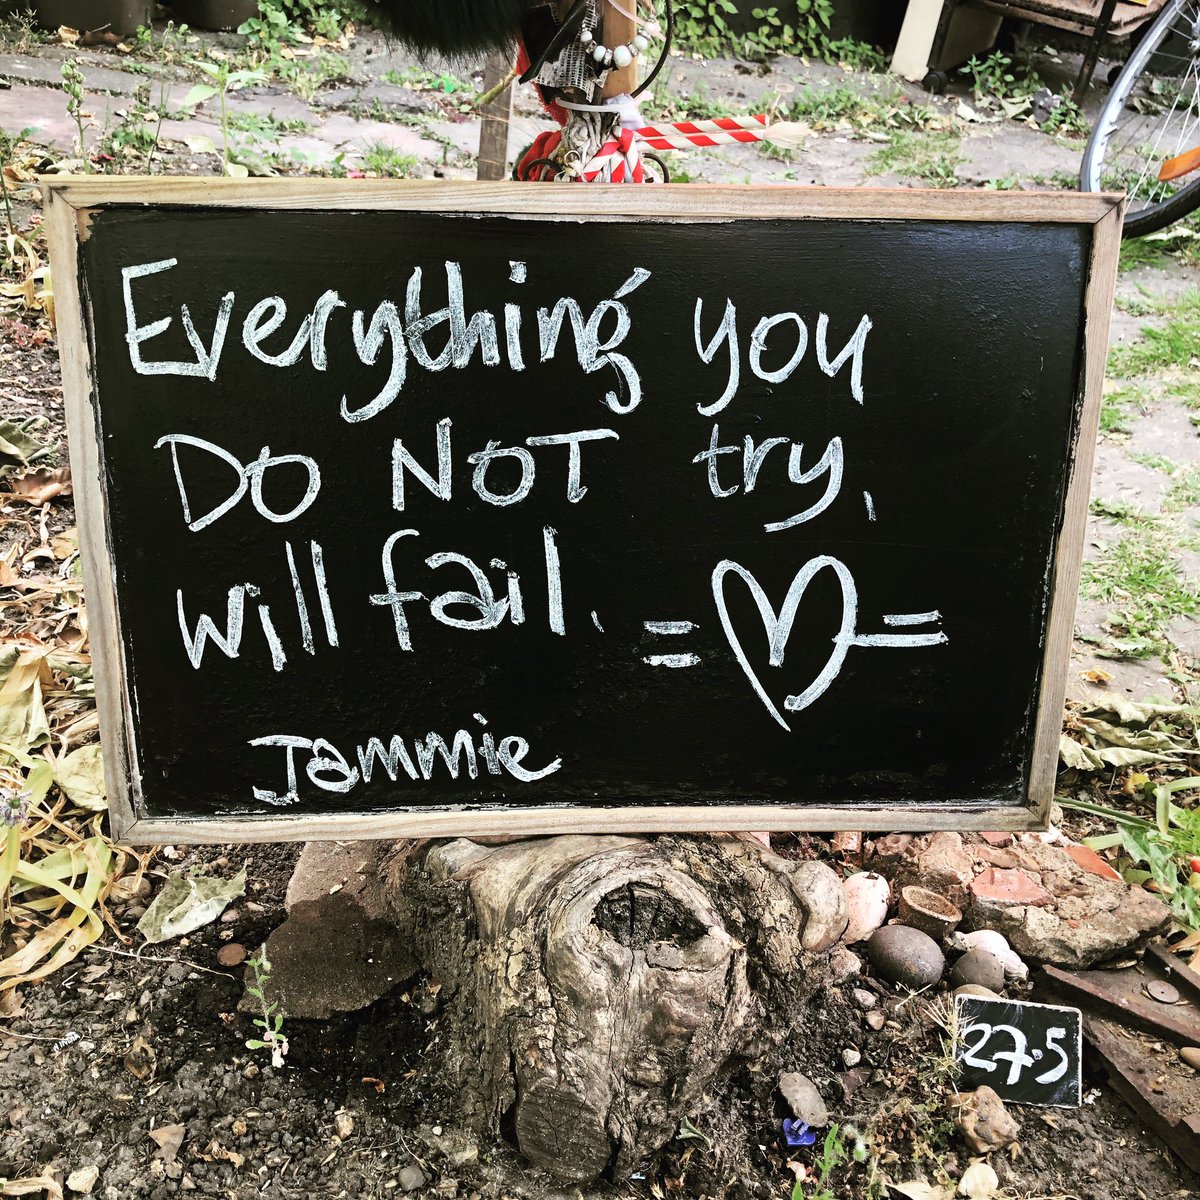 Everything you
DO NOT try,
will fail. =♡=
Jammie
27.5